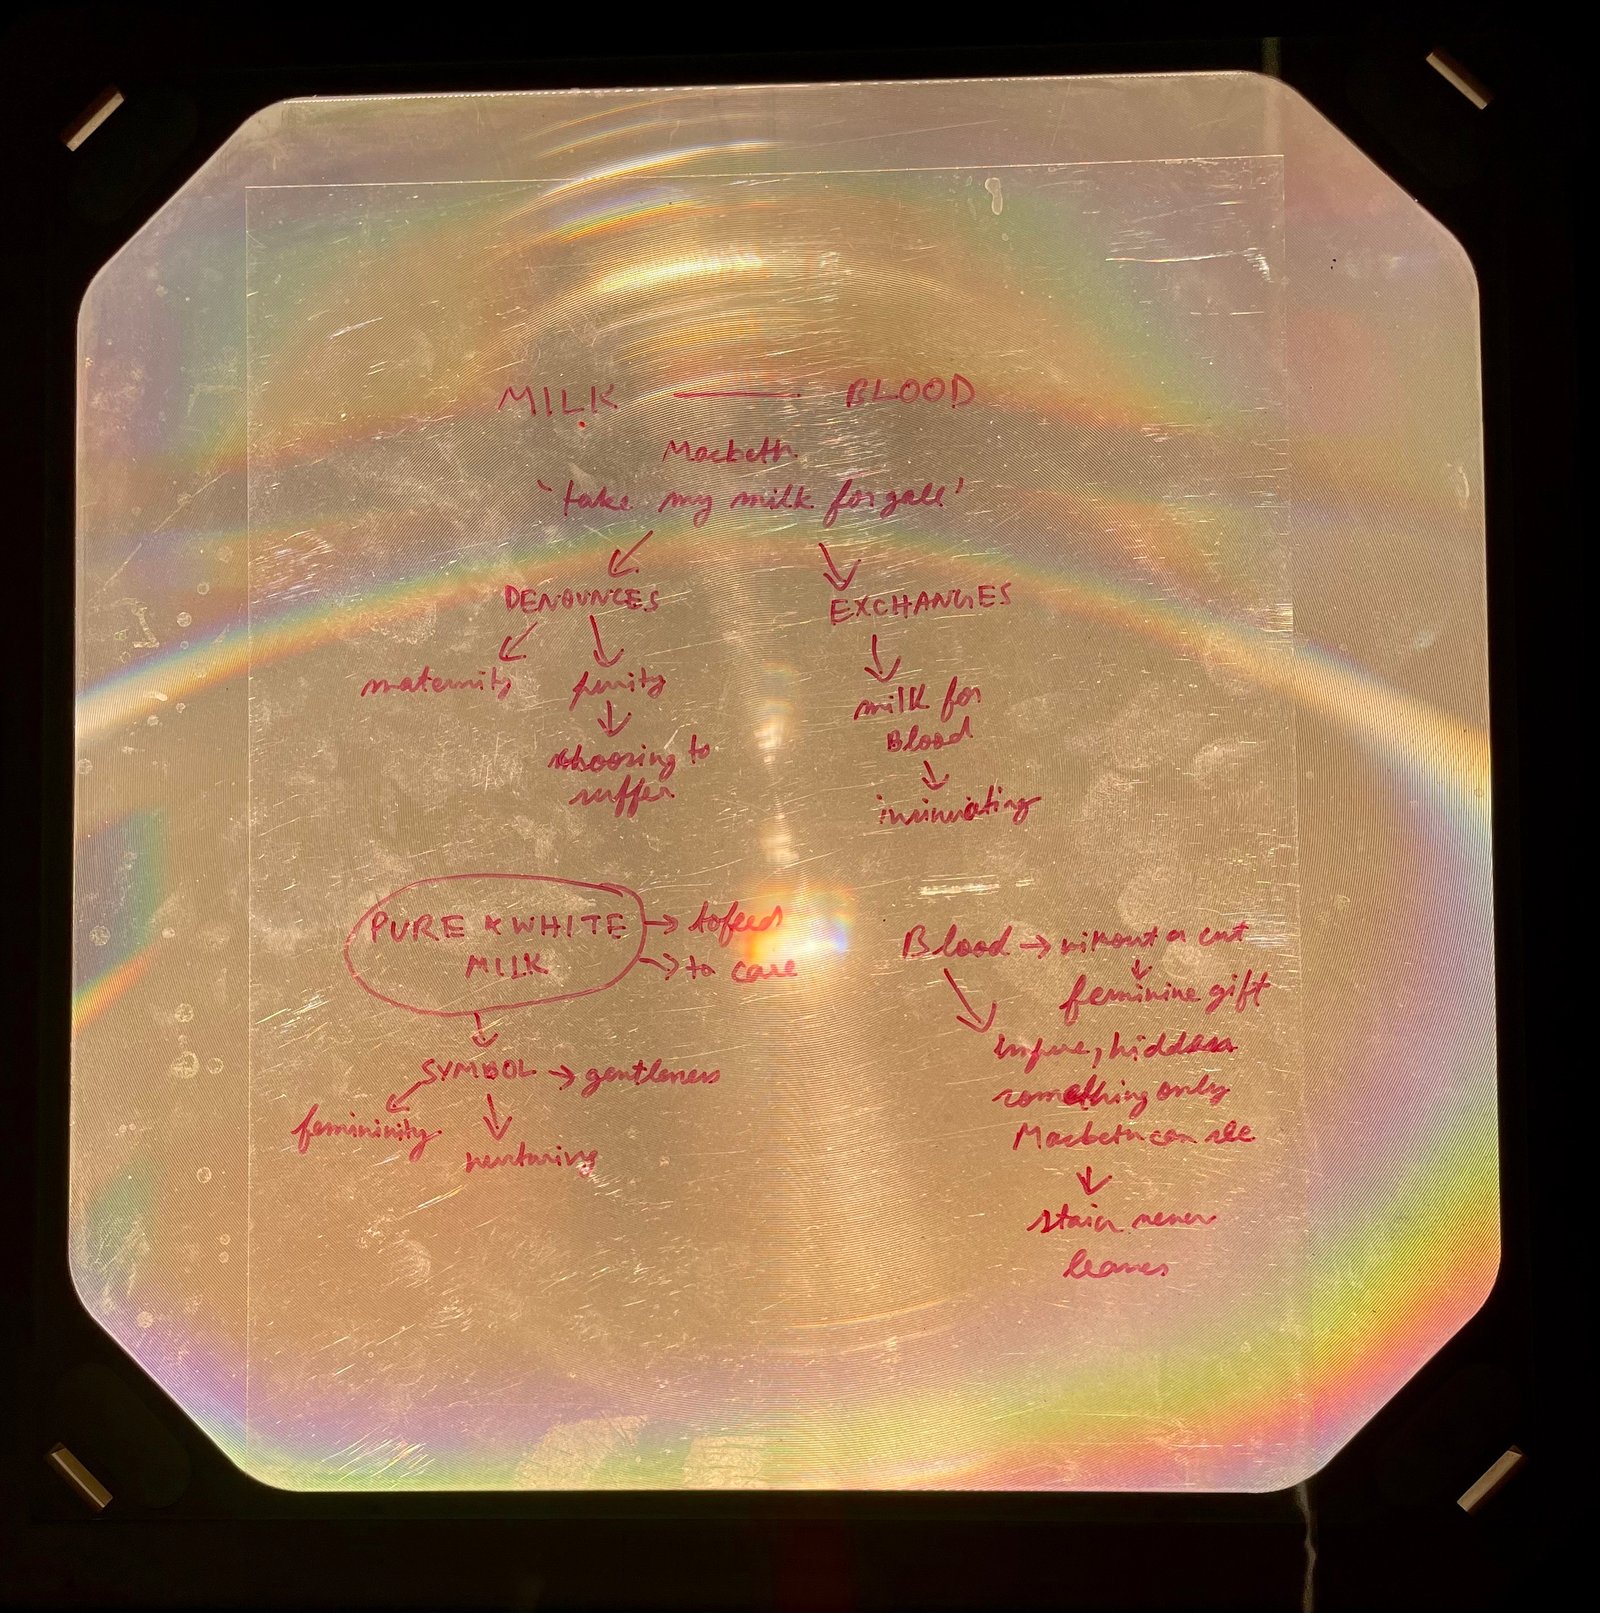 MILK — BLOOD
Macbeth.
'take my milk for gall'
DENOUNCES
EXCHANGES
maternity
purity
milk for
Blood
choosing to
suffer
insinuating
PURE & WHITE → to feed
MILK → to care
Blood → without a cut
feminine gift
impure, hidden
SYMBOL → gentleness
something only
femininity
Macbeth can see
nurturing
stain never
leaves